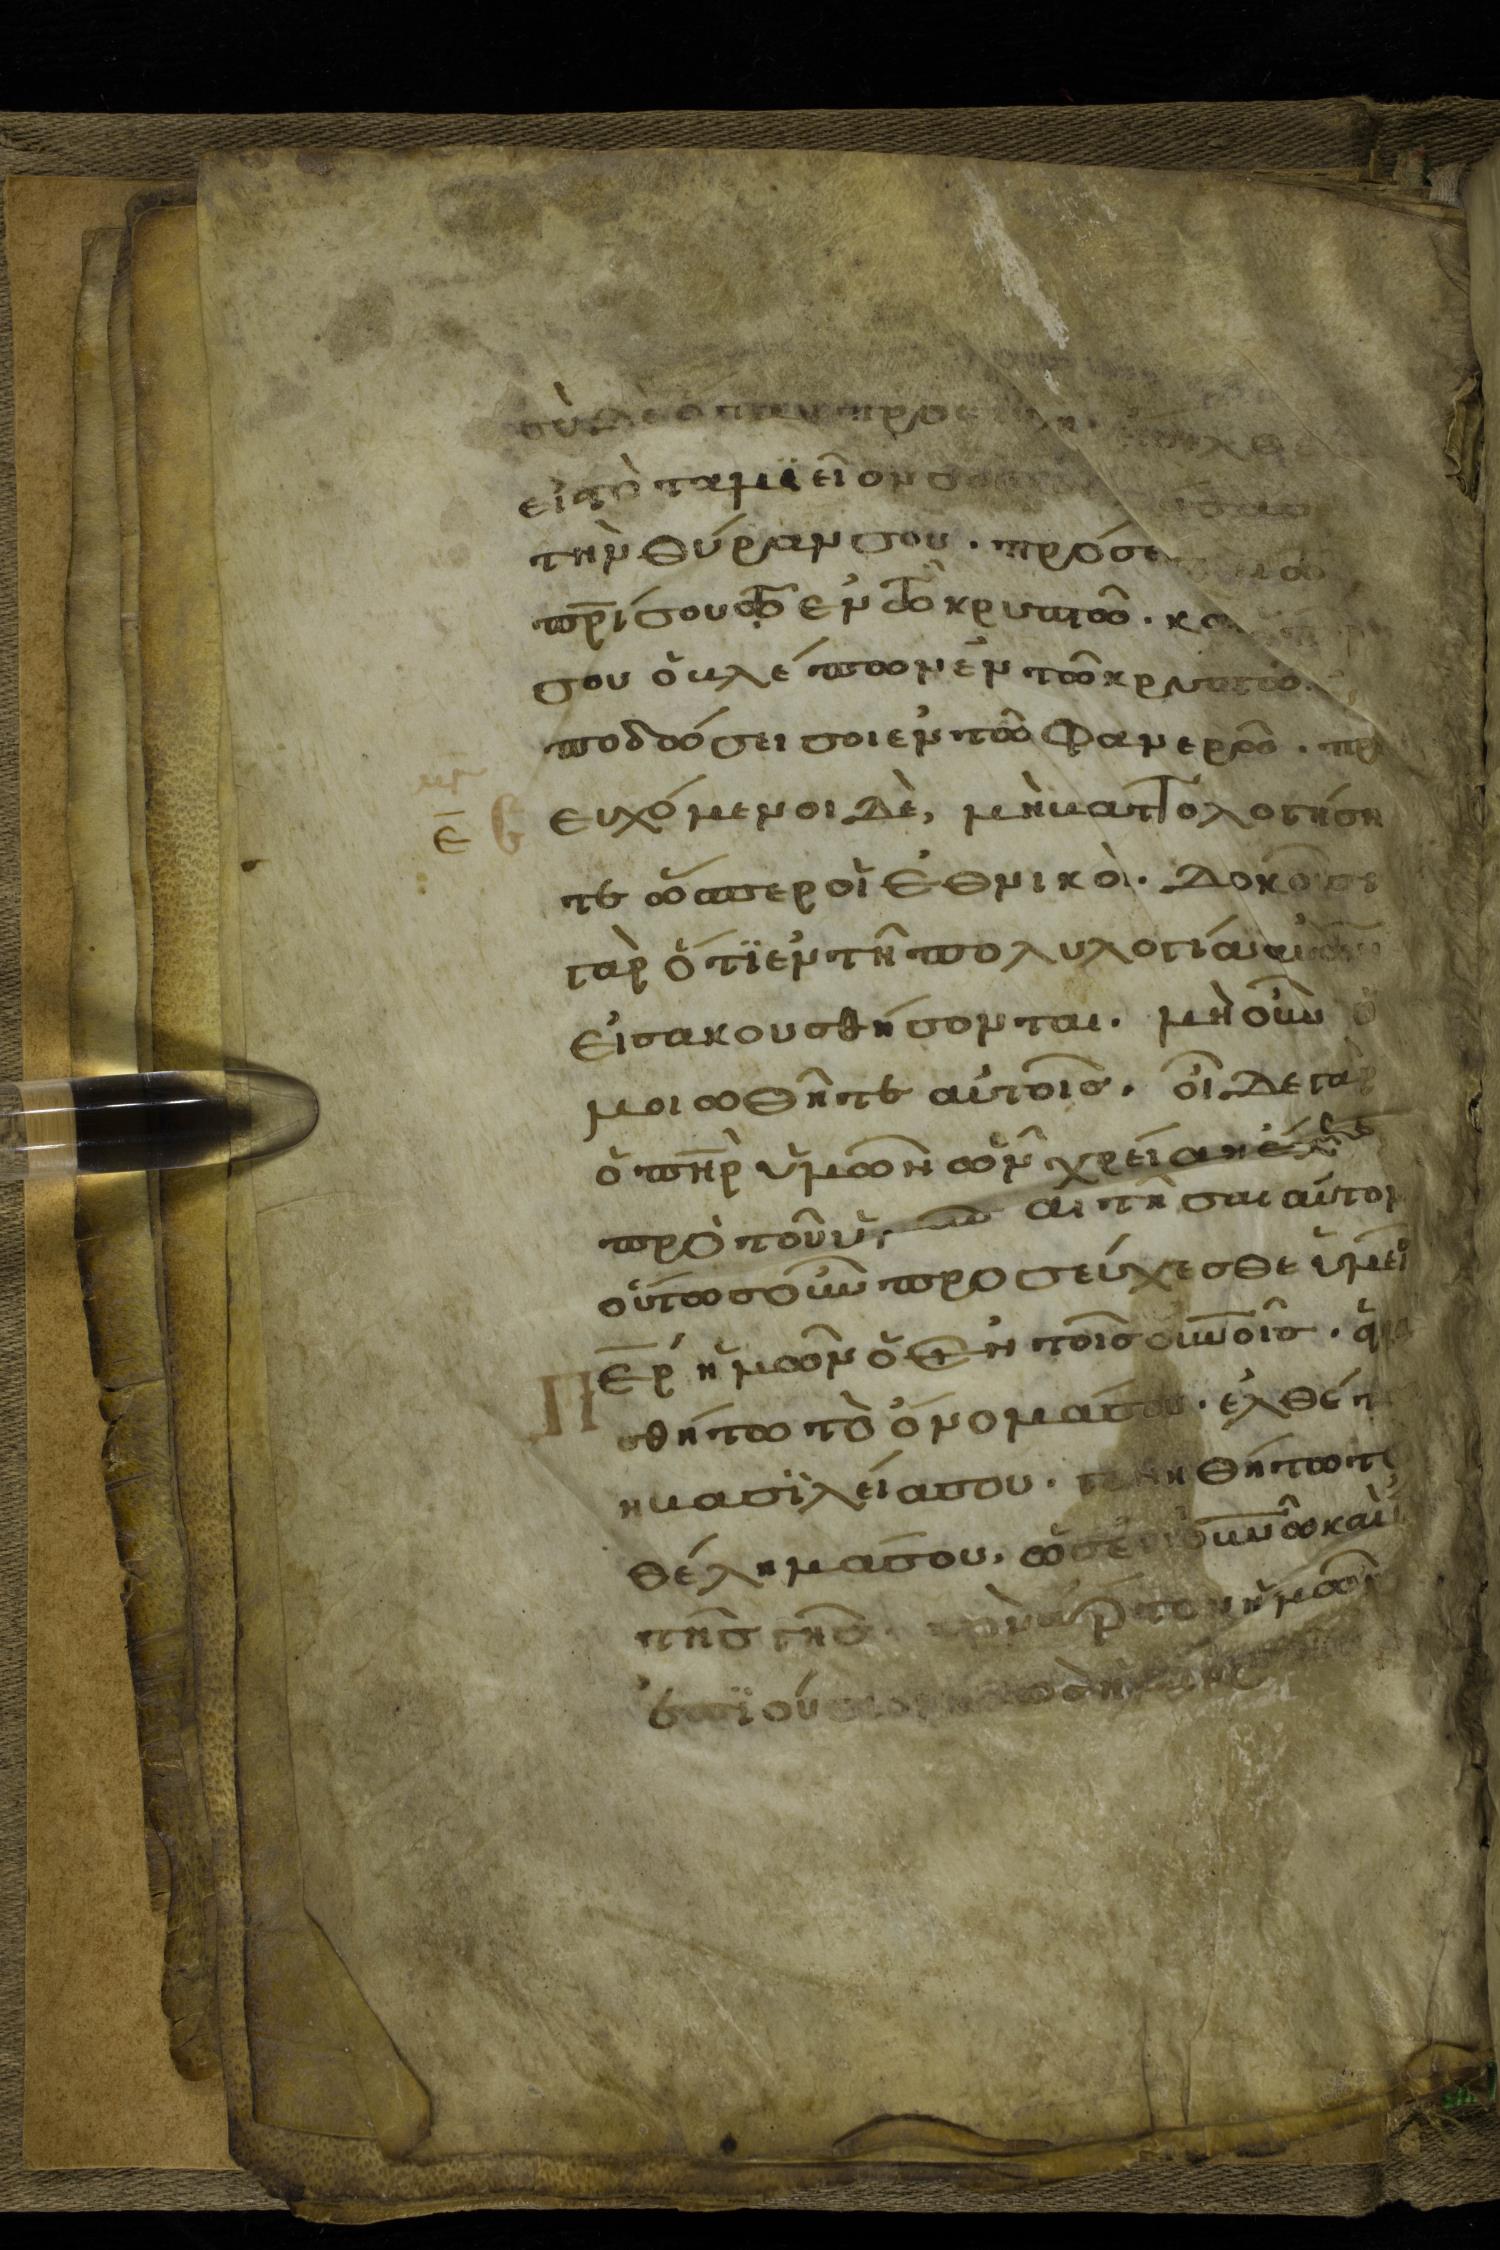 σὺ δὲ ὅταν προσεύχη· εἴσελθε
εἰς τὸ ταμϊεῖον σου
τὴν θύραν σου · πρόσε
πρ̅ί σου τῶ ἐν τῶ κρυπτῶ · κα
σου ὁ βλέπων ἐν τῶ κρυπτῶ
ποδώσει σοι ἐν τῶ φανερῶ · πρ
μγ
ε̅
ευχόμενοι δὲ, μὴ βαττολογήση
τε ὥσπερ οἱ ἐθνικοὶ · δοκοῦσι
γὰρ ὅτϊ ἐν τῆ πολυλογία αὐτῶν
εἰσακουσθήσονται · μὴ οὖν ὁ
μοιωθῆτε αὐτοῖς · οἶδε γὰρ
ὁ πη̅ρ ὑμῶν ὧν χρείαν ἔχετε
πρὸ τοῦ ὑμᾶς αἰτῆσαι αὐτον
οὕτως οὖν προσεύχεσθε ὑμεῖ
Πε̅ρ ἡμῶν ὁ ἐν τοῖς οὐνοῖς · ἁγια
σθήτω τὸ ὄνομα σου · ἐλθέτ
η βασϊλεία σου · γενηθήτω τ
θέλημα σου, ὡς ἐν οὐνῶ καὶ
τῆς γῆς · τὸν ἄρτον ἡμῶν
ἐπϊούσιον